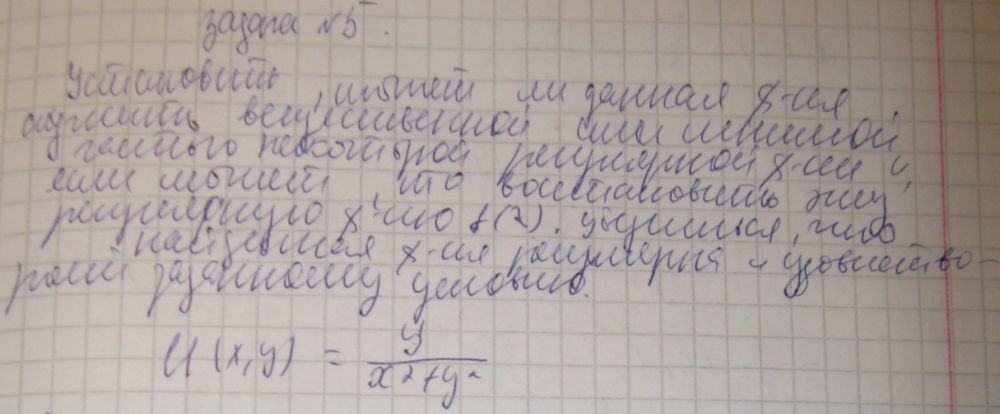 задача №5.
Установить, может ли данная х-ия
служить вещественной или мнимой
частью некоторой регулярной х-ии и,
если может, то восстановить эту
регулярную х-ию f(z). убедиться, что
найденная х-ия регулярна и удовлетво-
ряет заданному условию.
U(x,y) = y / x²+y²